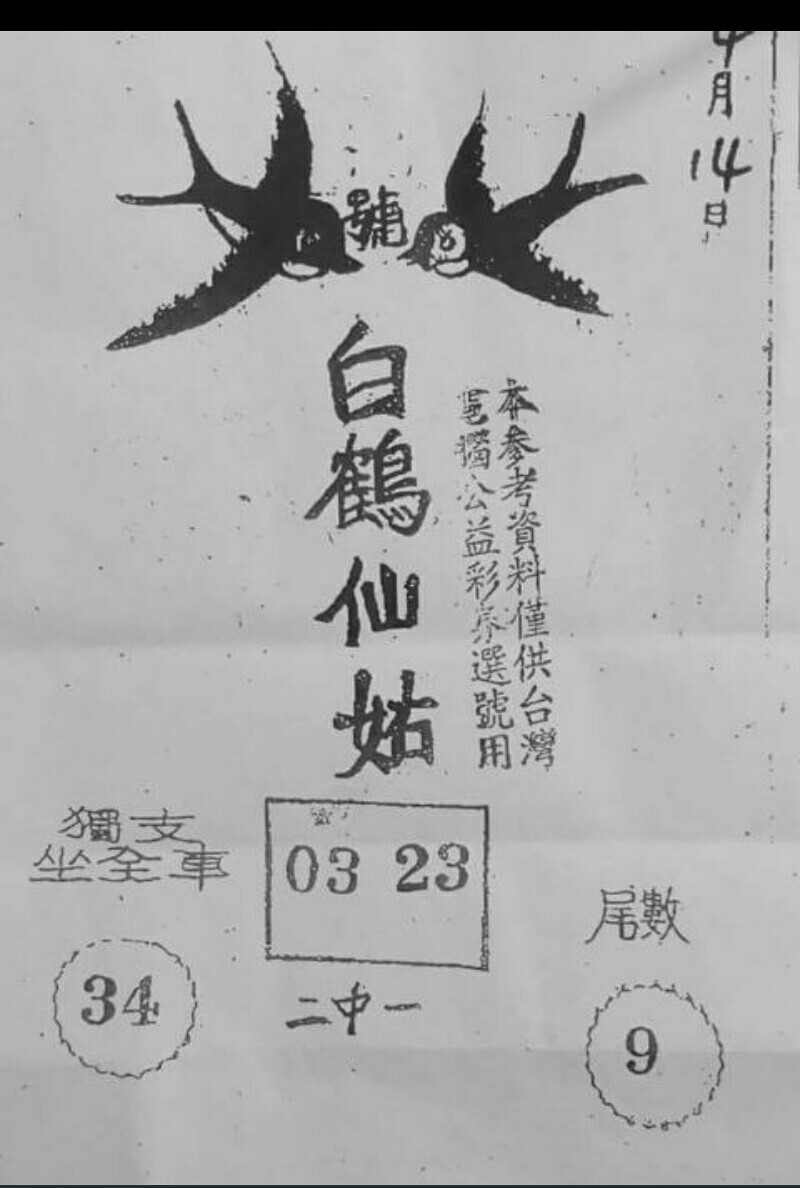 4月14日
號
白鶴仙姑
本參考資料僅供台灣
電腦公益彩券選號用
獨支
坐全車
34
03 23
二中一
尾數
9